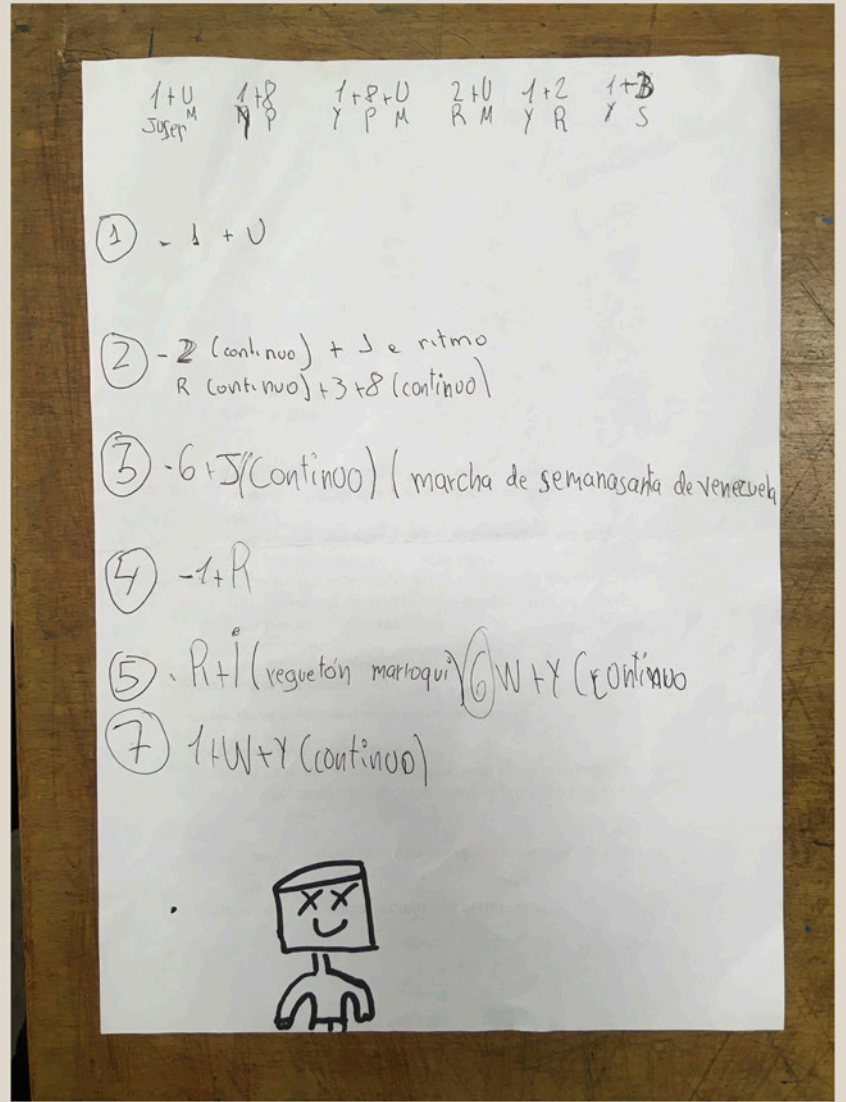 1+U 1+8 1+8+U 2+U 1+2 1+3
Juser M P Y P M R M Y R Y S
① - 1 + U
② - 2 (continuo) + 1 e ritmo
R (continuo) + 3 + 8 (continuo)
③ - 6 + (Continuo) (marcha de semanasanta de venezuela
④ - 1 + R
⑤ - R + (reguetón marroqui) ⑥ W + Y (continuo
⑦ 1 + W + Y (continuo)